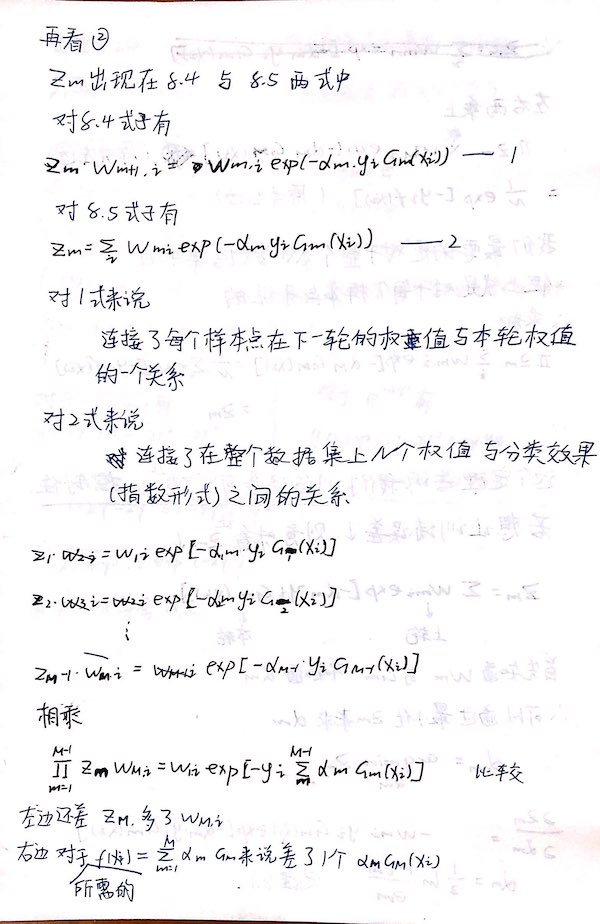 再看②
Zm出现在8.4 与 8.5 两式中
对8.4式子有
Zm·Wm+1,i = Wm,i exp(-αm·yi Gm(xi)) —— 1
对8.5式子有
Zm=∑i Wmi exp(-αm yi Gm(xi)) —— 2
对1式来说
连接了每个样本点在下一轮的权值与本轮权值
的一个关系
对2式来说
连接了在整个数据集上N个权值与分类效果
(指数形式)之间的关系
Z1·W2,i = W1,i exp[-α1m·yi G1(xi)]
Z2·W3,i = W2,i exp[-αm yi G2(xi)]
⋮
ZM-1·WM,i = WM-1,i exp[-αM-1·yi GM-1(xi)]
相乘
∏m=1M-1 Zm WM,i = W1,i exp[-yi ∑mM-1 αm Gm(xi)] 比较
左边还差 ZM,多了WM,i
右边对于 f(xi)=∑m=1M αm Gm来说差了1个 αMGM(xi)
所需的